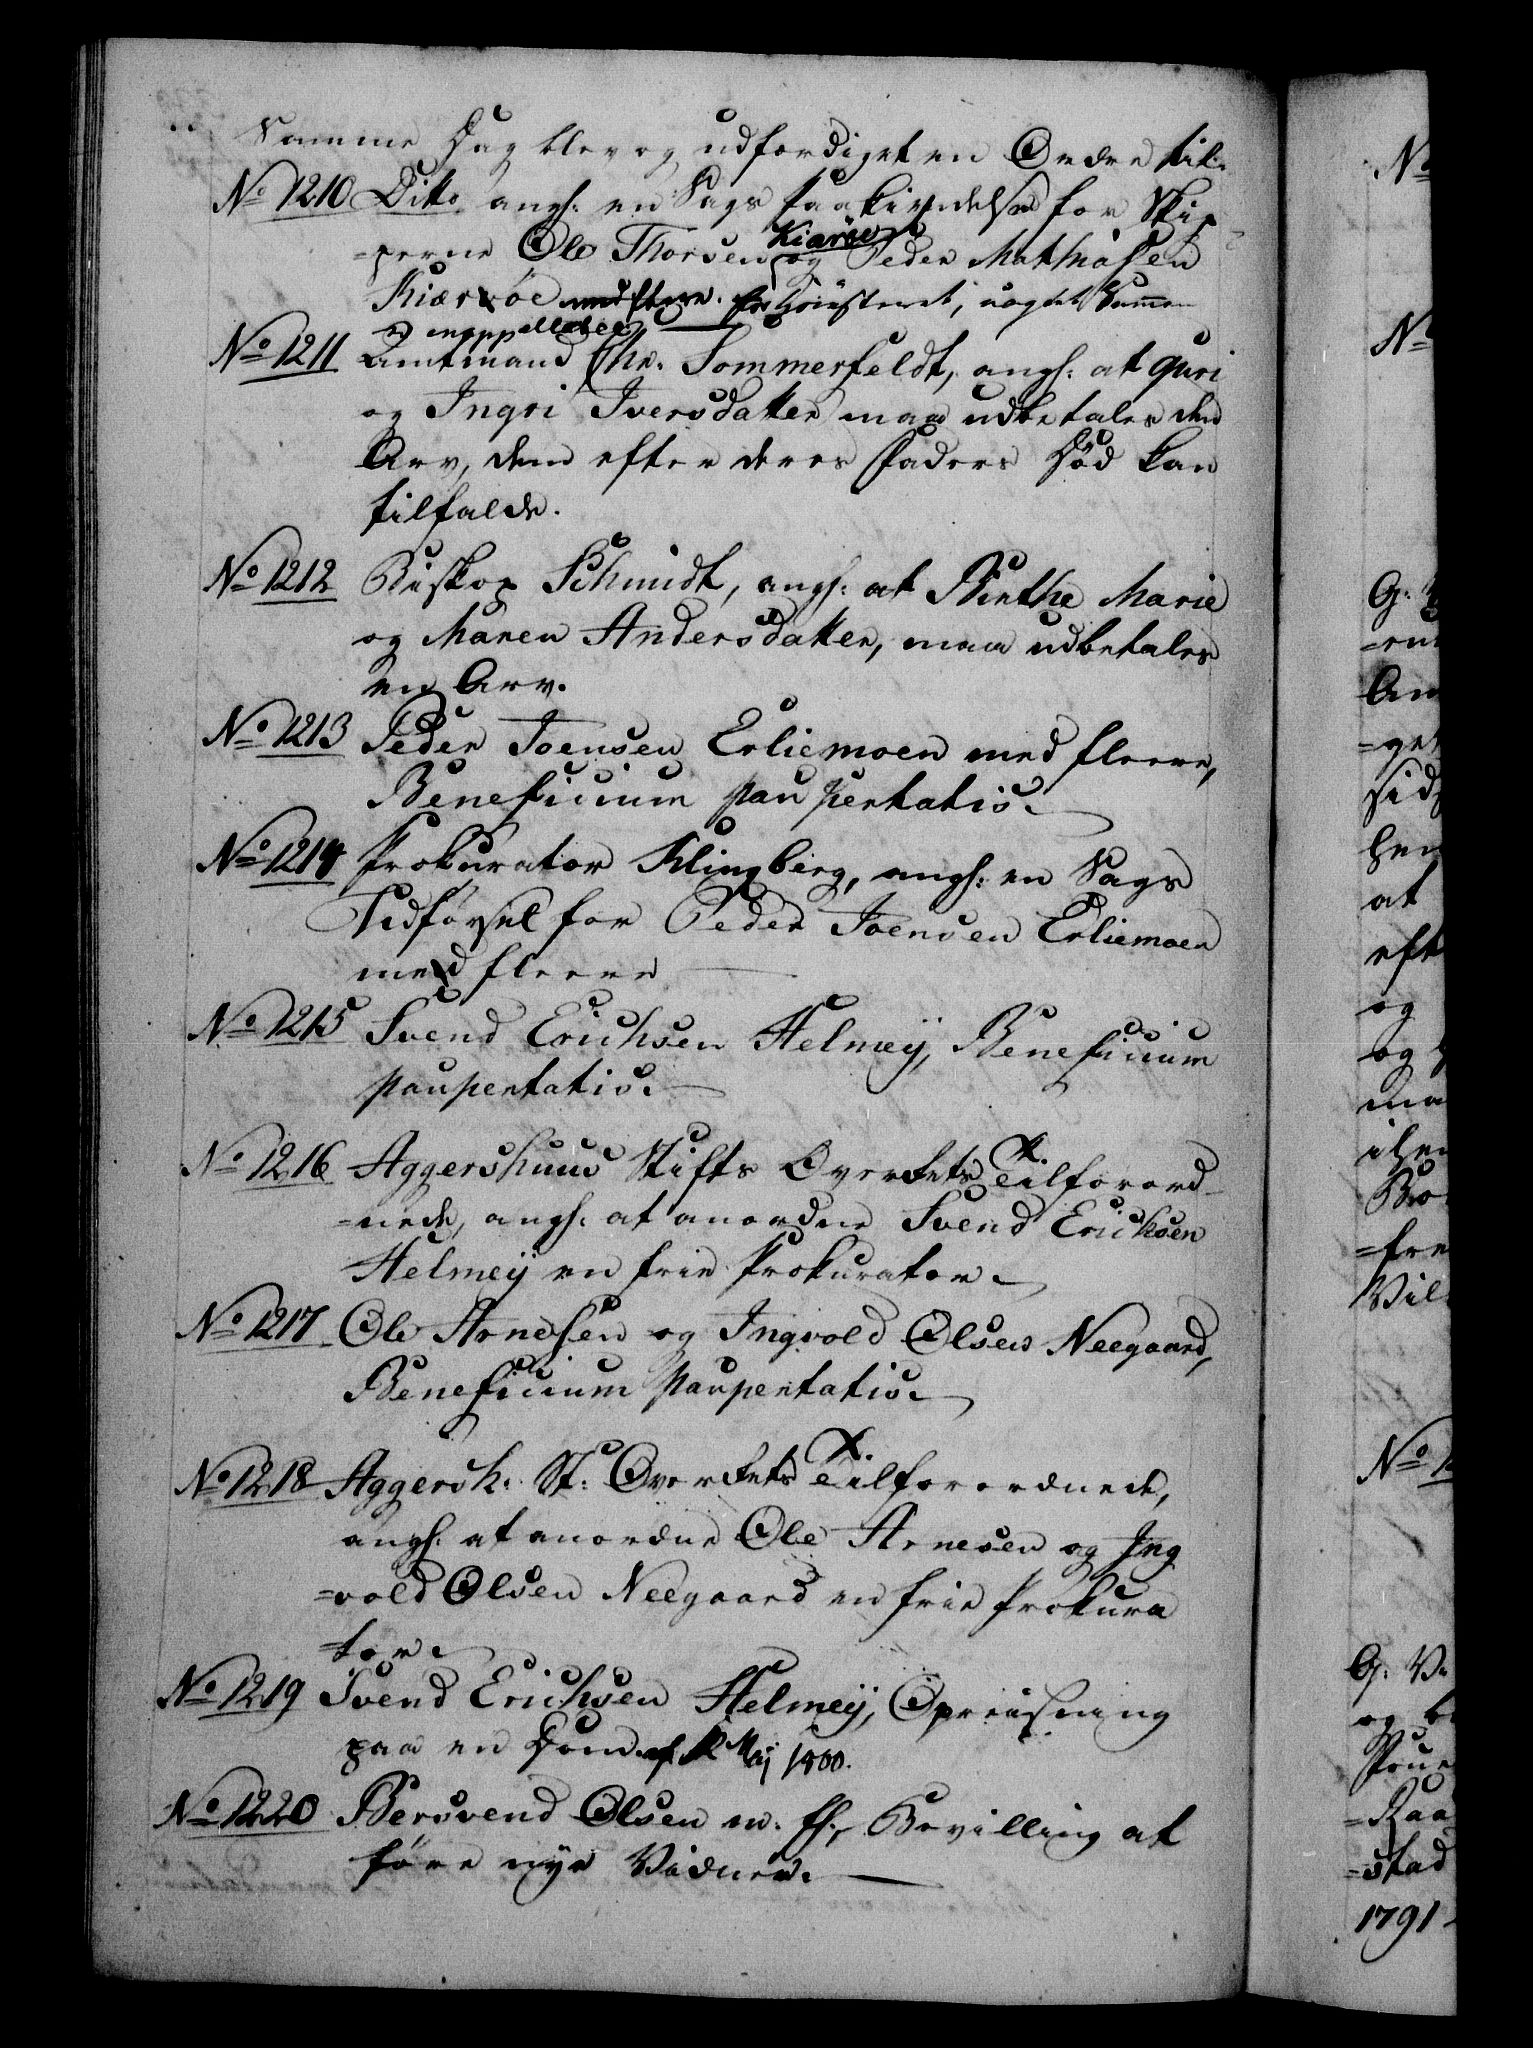 Samme Dag blev og udfærdiget en Ordre til:
No 1210 Dito angh: en Sags Paakiendelse for Skip
=perne Ole Thorsen Kiærøe og Peder Mathiasen
Kiærøe med flere. for Høiesteret, uagtet Summen
er inappellabel
No 1211 Amtmand Chr. Sommerfeldt, angh: at Guri
og Ingri Iversdatter maa udbetales den
Arv, dem efter deres Faders Död kan
tilfalde.
No 1212 Biskop Schmidt, angh: at Birthe Marie
og Maren Andersdatter, maa udbetales
en Arv.
No 1213 Peder Joensen Erliemoen med fleere,
Beneficium paupertatis.
No 1214 Prokurator Klingberg, angh: en Sags
Udførsel for Peder Joensen Erliemoen
med fleere
No 1215 Svend Erichsen Helmeÿ, Beneficium
paupertatis.
No 1216 Aggershuus Stifts Overrets Tilforord-
=nede, angh: at anordne Svend Erichsen
Helmeÿ en frie Prokurator.
No 1217 Ole Arnesen og Ingvold Olsen Neegaard,
Beneficium paupertatis.
No 1218 Aggersh: St: Overrets Tilforordnede,
angh: at anordne Ole Arnesen og Ing
=vold Olsen Neegaard en frie Prokura
=tor.
No 1219 Svend Erichsen Helmeÿ, Opreisning
paa en Dom af Maj 1800.
No 1220 Bersvend Olsen m. fl., Bevilling at
före nye Vidner.
No
No
G:
=
An
=get
sid
hen
at
eft
og
og
ma
igen
Bro
=fre
Vil
No 1
G: V
og b
=Raa
=stad
1791